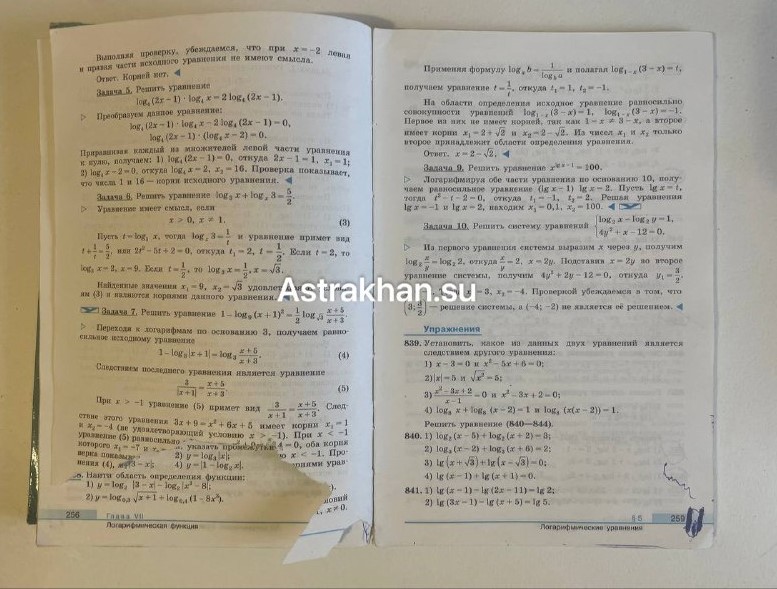 Выполняя проверку, убеждаемся, что при x=−2 левая
и правая части исходного уравнения не имеют смысла.
Ответ. Корней нет. ◄
Задача 5. Решить уравнение
log₄ (2x−1) · log₄ x = 2 log₄ (2x−1).
▷ Преобразуем данное уравнение:
log₄ (2x−1) · log₄ x − 2 log₄ (2x−1) = 0,
log₄ (2x−1) · (log₄ x − 2) = 0.
Приравнивая каждый из множителей левой части уравнения
к нулю, получаем: 1) log₄ (2x−1) = 0, откуда 2x−1=1, x₁=1;
2) log₄ x−2=0, откуда log₄ x=2, x₂=16. Проверка показывает,
что числа 1 и 16 — корни исходного уравнения. ◄
Задача 6. Решить уравнение log₃ x + logₓ 3 = 5/2.
▷ Уравнение имеет смысл, если
x > 0, x ≠ 1. (3)
Пусть t=log₃ x, тогда logₓ 3=1/t и уравнение примет вид
t+1/t=5/2, или 2t²−5t+2=0, откуда t₁=2, t=1/2. Если t=2, то
log₃ x=2, x=9. Если t=1/2, то log₃ x=1/2, x=√3.
Найденные значения x₁=9, x₂=√3
ям (3) и являются корнями данного уравнения.
Задача 7. Решить уравнение 1−log₃ (x+1)²=1/2 log√3 (x+5)/(x+3)
▷ Переходя к логарифмам по основанию 3, получаем равно-
сильное исходному уравнение
1−log₃ |x+1|=log₃ (x+5)/(x+3). (4)
Следствием последнего уравнения является уравнение
3/|x+1| = (x+5)/(x+3) (5)
При x > −1 уравнение (5) примет вид 3/(x+1)=(x+5)/(x+3). След-
ствие этого уравнения 3x+9=x²+6x+5 имеет корни x₁=1
и x₂=−4 (не удовлетворяющий условию x > −1). При x < −1
уравнение (5) равносильно =0, оба корня
которого x₁=−7 и x < −1. Про-
верка показы
нения (4),
указать промежутки
2) y=log₃ |x|;
|3−x|; 4) y=|1−log₂ x|.
Найти область определения функции:
1) y=log₂ |3−x|−log₂ |x³−8|;
2) y=log₀,₃ √x+1+log₀,₄ (1−8x³).
x≠0.
256 Глава VII
Логарифмическая функция
Применяя формулу logₐ b=1/log_b a и полагая log₁₋ₓ (3−x)=t,
получаем уравнение t=1/t, откуда t₁=1, t₂=−1.
На области определения исходное уравнение равносильно
совокупности уравнений log₁₋ₓ (3−x)=1, log₁₋ₓ (3−x)=−1.
Первое из них не имеет корней, так как 1−x≠3−x, а второе
имеет корни x₁=2+√2 и x₂=2−√2. Из чисел x₁ и x₂ только
второе принадлежит области определения уравнения.
Ответ. x=2−√2. ◄
Задача 9. Решить уравнение x^(lg x−1)=100.
▷ Логарифмируя обе части уравнения по основанию 10, полу-
чаем равносильное уравнение (lg x−1) lg x=2. Пусть lg x=t,
тогда t²−t−2=0, откуда t₁=−1, t₂=2. Решая уравнения
lg x=−1 и lg x=2, находим x₁=0,1, x₂=100. ◄
Задача 10. Решить систему уравнений { log₂ x−log₂ y=1,
4y²+x−12=0.
▷ Из первого уравнения системы выразим x через y, получим
log₂ x/y=log₂ 2, откуда x/y=2, x=2y. Подставив x=2y во второе
уравнение системы, получим 4y²+2y−12=0, откуда y₁=3/2,
=3, x₂=−4. Проверкой убеждаемся в том, что
(3; 3/2) — решение системы, а (−4; −2) не является её решением. ◄
Astrakhan.su
Упражнения
839. Установить, какое из данных двух уравнений является
следствием другого уравнения:
1) x−3=0 и x²−5x+6=0;
2) |x|=5 и √x²=5;
3) (x²−3x+2)/(x−1)=0 и x²−3x+2=0;
4) log₈ x+log₈ (x−2)=1 и log₈ (x(x−2))=1.
Решить уравнение (840—844).
840. 1) log₂ (x−5)+log₂ (x+2)=3;
2) log₃ (x−2)+log₃ (x+6)=2;
3) lg (x+√3)+lg (x−√3)=0;
4) lg (x−1)+lg (x+1)=0.
841. 1) lg (x−1)−lg (2x−11)=lg 2;
2) lg (3x−1)−lg (x+5)=lg 5.
259
Логарифмические уравнения